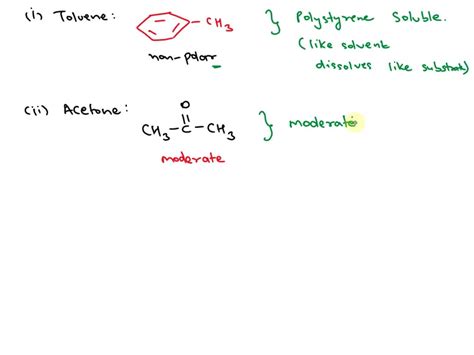 (i) Toluene: CH3 } Polystyrene Soluble.
non-polar (like solvent
dissolves like substrate)
(ii) Acetone: O
CH3-C-CH3 } moderate
moderate